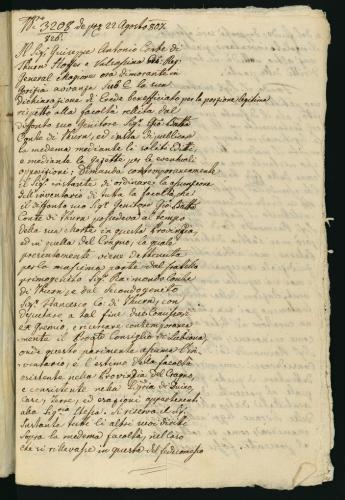 N.º 3208 de pr. 22 Agosto 807.
Il Sig. Giuseppe Antonio Conte di
Thurn Hoffer e Valsassina
General Magiore ora dimorante in
Gorizia avvanza Sub L. la sua
Dichiarazione di Erede beneficiato per la porzione legitima
rispetto alla facoltà relitta dal
diffonto suo Genitore Sig. Gio: Batta
Conte di Thurn, ed insta di publicare
la medema mediante li soliti Editti,
e mediante le Gazette per le eventuali
opposizioni; Dimanda contemporaneamente
il Sig. instante di ordinare la assunzione
dell'inventario di tutta la facoltà che
il diffonto suo Sig. Genitore Gio: Batta
Conte di Thurn possedeva al tempo
della sua Morte in questa Provincia,
ed in quella del Cragno, la quale
presentemente viene detenuta
per la massima parte dal fratello
primogenito Sig. Raimondo Conte
di Thurn, e dal Secondogenito
Sig. Francesco Co: di Thurn, con
deputare a tal fine due Comissarj
ex Gremio, e ricercare contemporanea-
mente il Consiglio di Lubiana,
onde questo parimente assuma l'in-
ventario, e l'estimo della facoltà
esistente nella Provinzia del Cragno,
e consistente nella
Case, Terre, ed eragioni appartenenti
alla Sig.ria stessa. Si riserva il Sig.
Instante tutti li altri suoi diritti
sopra la medema facoltà, nel caso
che si rillevasse in questa del fedecomesso